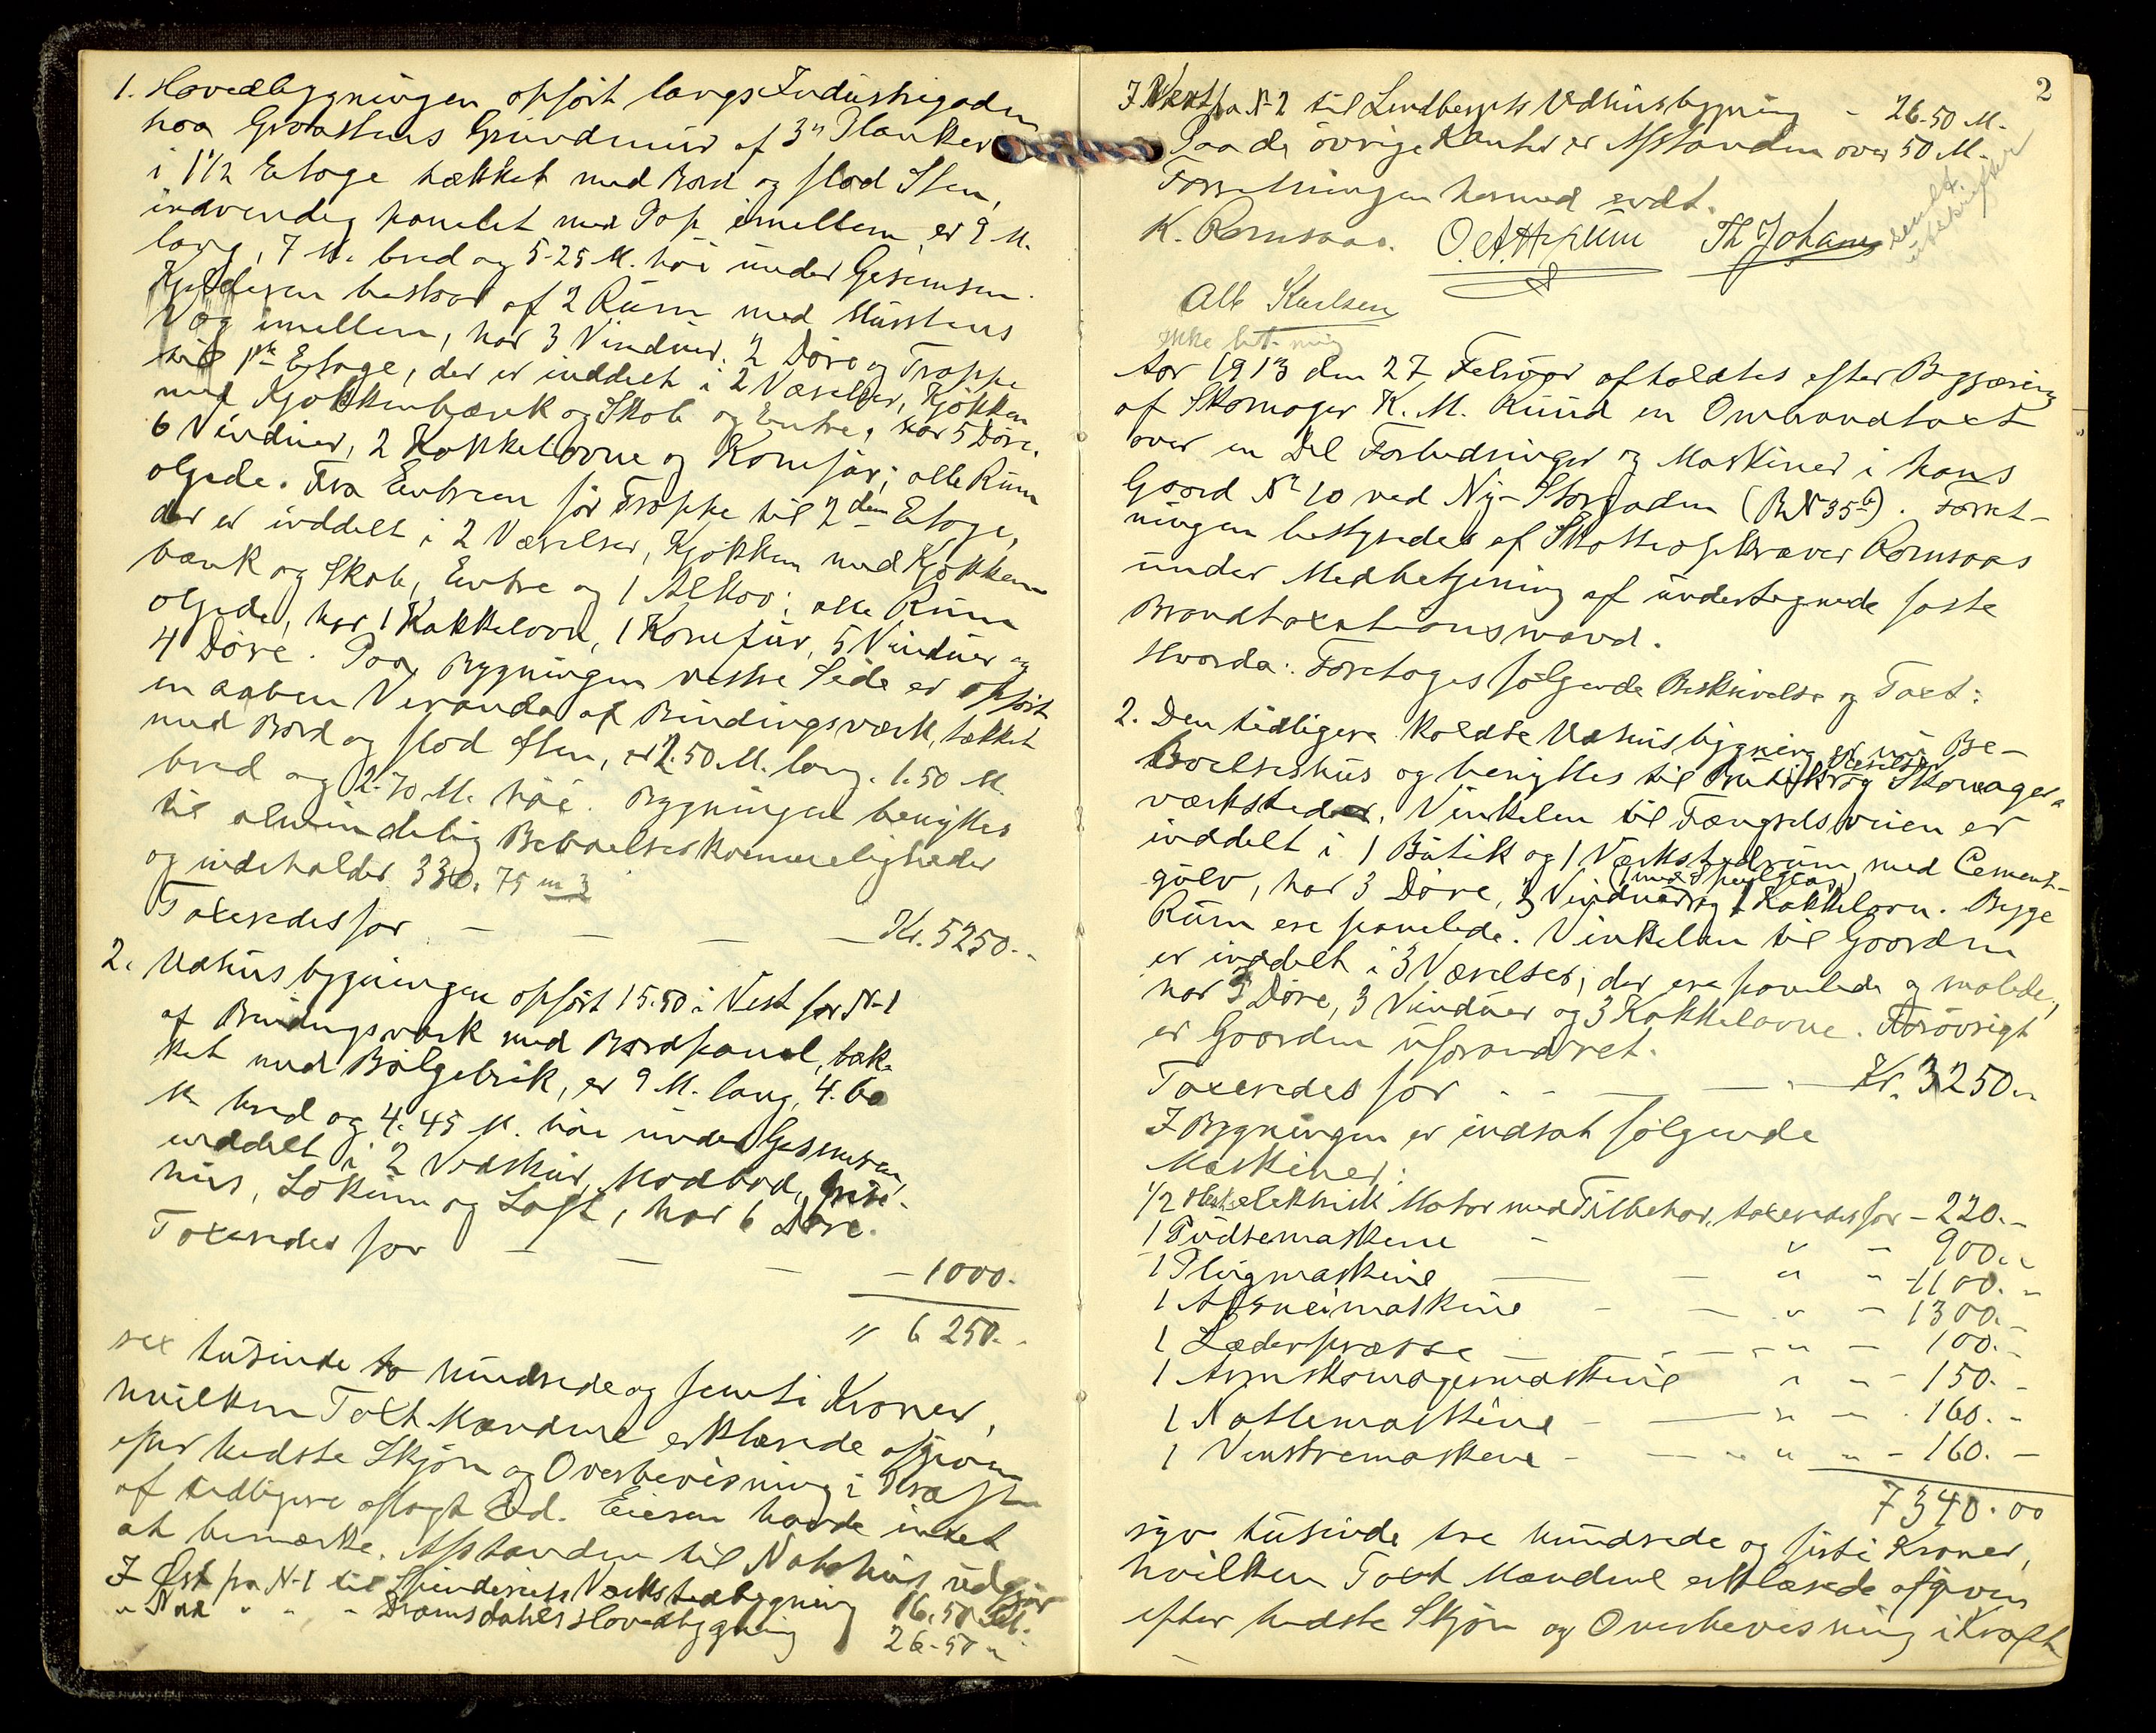 1. Hovedbygningen opført langs Industrigaden
paa Graastens Grundmur af 3" Planker
i 1 1/2 Etage tækket med Bord og flad Sten,
indvendig panelet med Pap imellem, er 9 M.
lang, 7 M. bred og 5.25 M. høi under Gesemsen.
Kjelderen bestaar af 2 Rum med Murstens
Væg imellem, har 3 Vinduer, 2 Døre og Trappe
til 1ste Etage, der er inddelt i 2 Værelser, Kjøkken
med Kjøkkenbænk og Skab og Entre, har 5 Døre,
6 Vinduer, 2 Kakkelovne og Komfur; alle Rum
oljede. Fra Entreen før Trappe til 2den Etage,
der er inddelt i 2 Værelser, Kjøkken med Kjøkken
bænk og Skab, Entre og 1 Alkov; alle Rum
oljede, har 1 Kakkelovn, 1 Komfur, 5 Vinduer og
4 Døre. Paa Bygningens vestre Side er opført
en aaben Veranda af Bindingsværk, tækket
med Bord og flad Sten, er 2.50 M. lang. 1.50 M.
bred og 2.70 M. høi. Bygningen benyttes
til almindelig Beboelsesbekvemmeligheder
og indeholder 330.75 m3
Taxeredes for — — — — Kr. 5250.-
2. Udhusbygningen opført 15.50 i Vest for N-1
af Bindingsværk med Bordpanel, tæk-
ket med Bølgeblik, er 9 M. lang, 4.60
M. bred og 4.45 M. høi under Gesemsen,
inddelt i 2 Vedskur, Madbod, Grise-
hus, Lokum og Loft, har 6 Døre.
Taxeredes for — — — — 1000.-
" 6250.-
sex tusinde to hundrede og femti Kroner,
hvilken Taxt Mændene erklærede afgiven
efter bedste Skjøn og Overbevisning i Kraft
af tidligere aflagt Ed. Eieren havde intet
at bemærke. Afstanden til Nabohus udgjør
I Øst fra N-1 til Spinderiets Værkstedbygning 16.50 M.
" Nord " " - Dramsdahls Hovedbygning 26.50 "
2
I Vest fra N-2 til Lundbergets Udhusbygning - 26.50 M.
Paa de øvrige Kanter er Afstanden over 50 M.
Forretningen hermed endt.
K. Romsaas. Th Johans
Alb Karlsen
Ikke bet. mig
Aar 1913 den 27 Februar afholdtes efter Begjæring
af Skomager K. M. Ruud en Ombrandtaxt
over en Del Forbedringer og Maskiner i hans
Gaard No 10 ved Ny-Storgaden (BN 35b). Forret-
ningen bestyredes af Skatteopkræver Romsaas
under Medbetjening af undertegnede faste
Brandtaxationsmænd.
Hvorda: Foretoges følgende Beskrivelse og Taxt:
2. Den tidligere kaldte Udhusbygning er nu Be-
boelseshus og benyttes til Butik Værelser og Skomager-
værksteder. Vinkelen til Fængselsveien er
inddelt i 1 Butik og 1 Værkstedrum, med Cement-
gulv, har 3 Døre, 3 Vinduer (med Speilglas) og 1 Kakkelovn. Begge
Rum ere panelede. Vinkelen til Gaarden
er inddelt i 3 Værelser, der ere panelede og malede,
har 5 Døre, 3 Vinduer og 3 Kakkelovne. Forøvrigt
er Gaarden uforandret.
Taxeredes for - - — — Kr. 3250.-
I Bygningen er indsat følgende
Maskiner:
1/2 Hest. elektrisk Motor med Tilbehør, taxeredes for - 220.-
1 Pudsemaskine - " - 900.-
1 Plugmaskine — - " - 1100.-
1 Afsneimaskine - — " - 1300.-
1 Læderpresse — - " - 100.-
1 Armskomagermaskine " - 150.-
1 Naatlemaskine - — " - 160.-
1 Venstremaskine - — " - 160.-
7340.00
syv tusinde tre hundrede og firti Kroner,
hvilken Taxt Mændene erklærede afgiven
efter bedste Skjøn og Overbevisning i Kraft